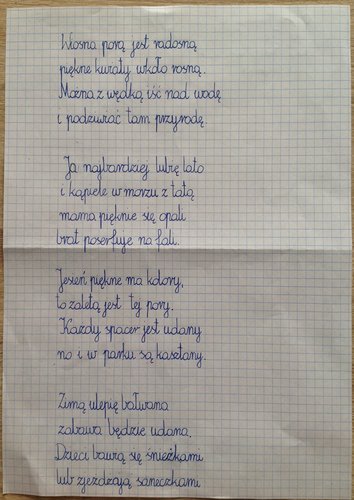 Wiosna porą jest radosną
piękne kwiaty wkoło rosną.
Można z wędką iść nad wodę
i podziwiać tam przyrodę
Ja najbardziej lubię lato
i kąpiele w morzu z tatą
mama pięknie się opali
brat poserfuje na fali.
Jesień piękne ma kolory,
to zaletą jest tej pory.
Każdy spacer jest udany
no i w parku są kasztany.
Zimą ulepię bałwana
zabawa będzie udana.
Dzieci bawią się śnieżkami
lub zjeżdżają saneczkami